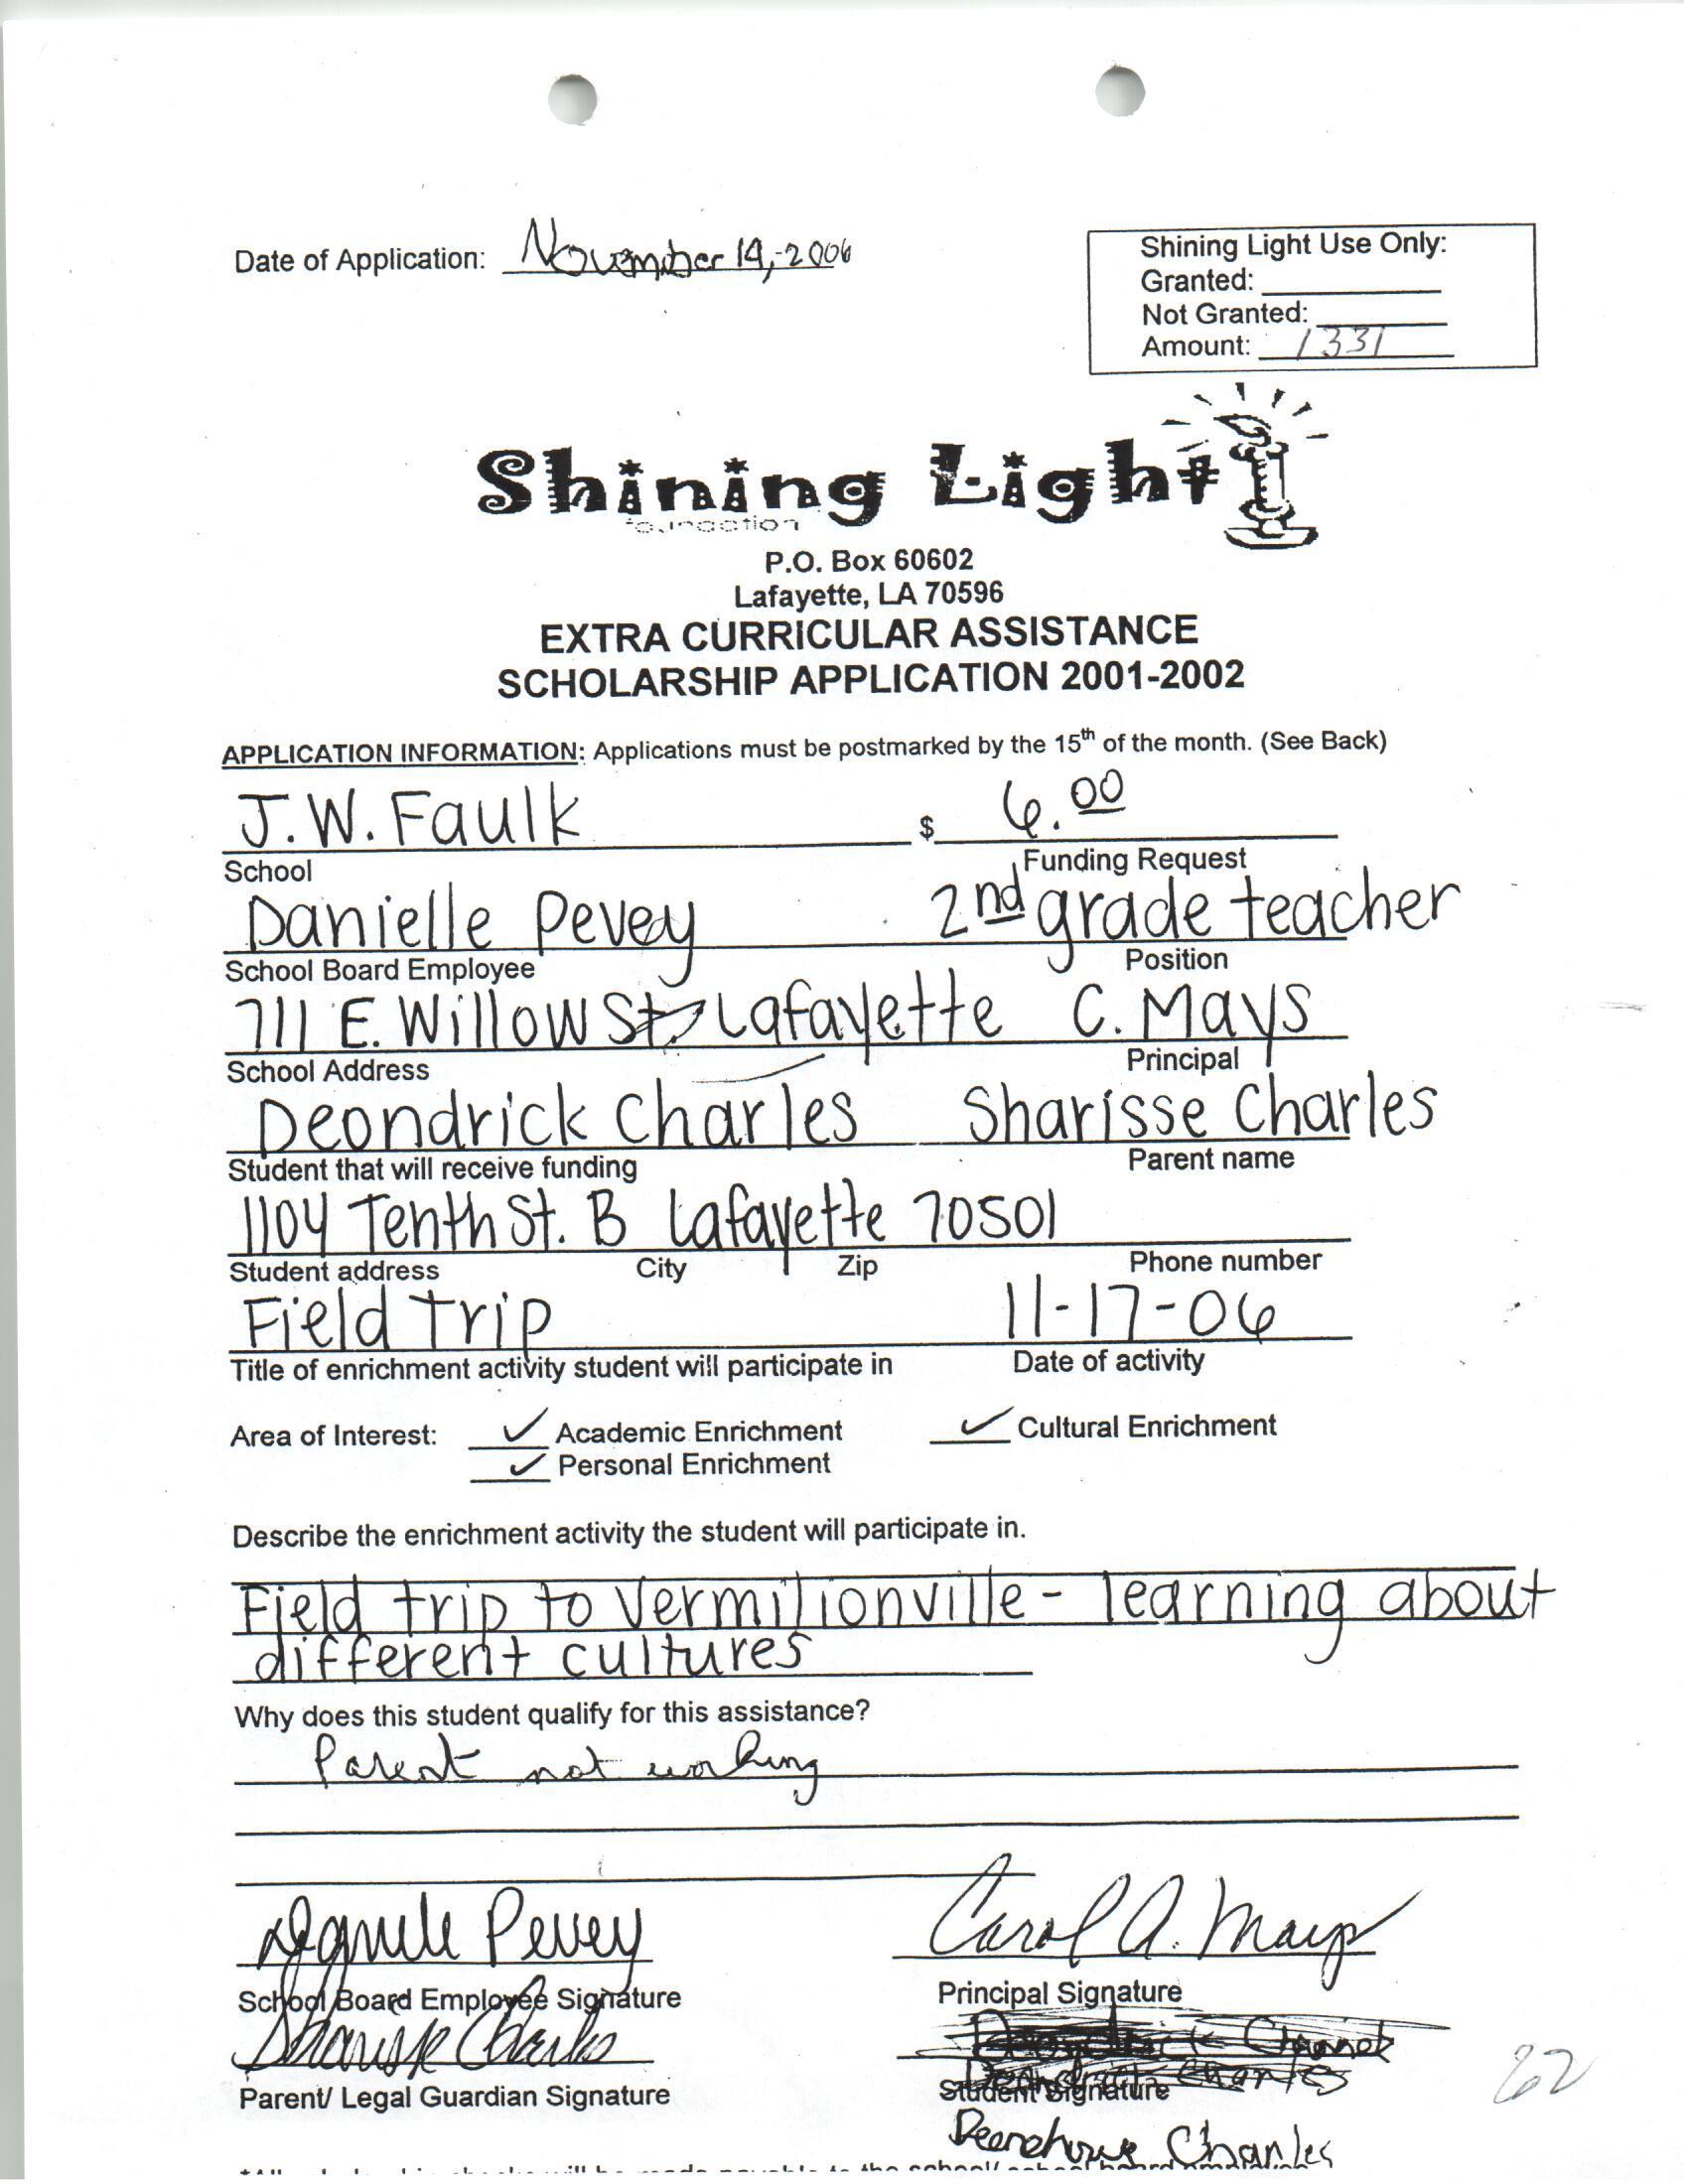 Date of Application: November 14, 2006
Shining Light Use Only:
Granted:
Not Granted:
Amount: 1331
Shining Light
foundation
P.O. Box 60602
Lafayette, LA 70596
EXTRA CURRICULAR ASSISTANCE
SCHOLARSHIP APPLICATION 2001-2002
APPLICATION INFORMATION: Applications must be postmarked by the 15th of the month. (See Back)
J.W. Faulk $ 6.00
School Funding Request
Danielle Pevey 2nd grade teacher
School Board Employee Position
711 E. Willow St. Lafayette C. Mays
School Address Principal
Deondrick Charles Sharisse Charles
Student that will receive funding Parent name
1104 Tenth St. B Lafayette 70501
Student address City Zip Phone number
Field trip 11-17-06
Title of enrichment activity student will participate in Date of activity
Area of Interest: ✓ Academic Enrichment ✓ Cultural Enrichment
✓ Personal Enrichment
Describe the enrichment activity the student will participate in.
Field trip to Vermilionville - learning about
different cultures
Why does this student qualify for this assistance?
Parent not working
Danielle Pevey Carol A. Mays
School Board Employee Signature Principal Signature
Sharisse Charles
Parent/ Legal Guardian Signature Student Signature
Charles
62